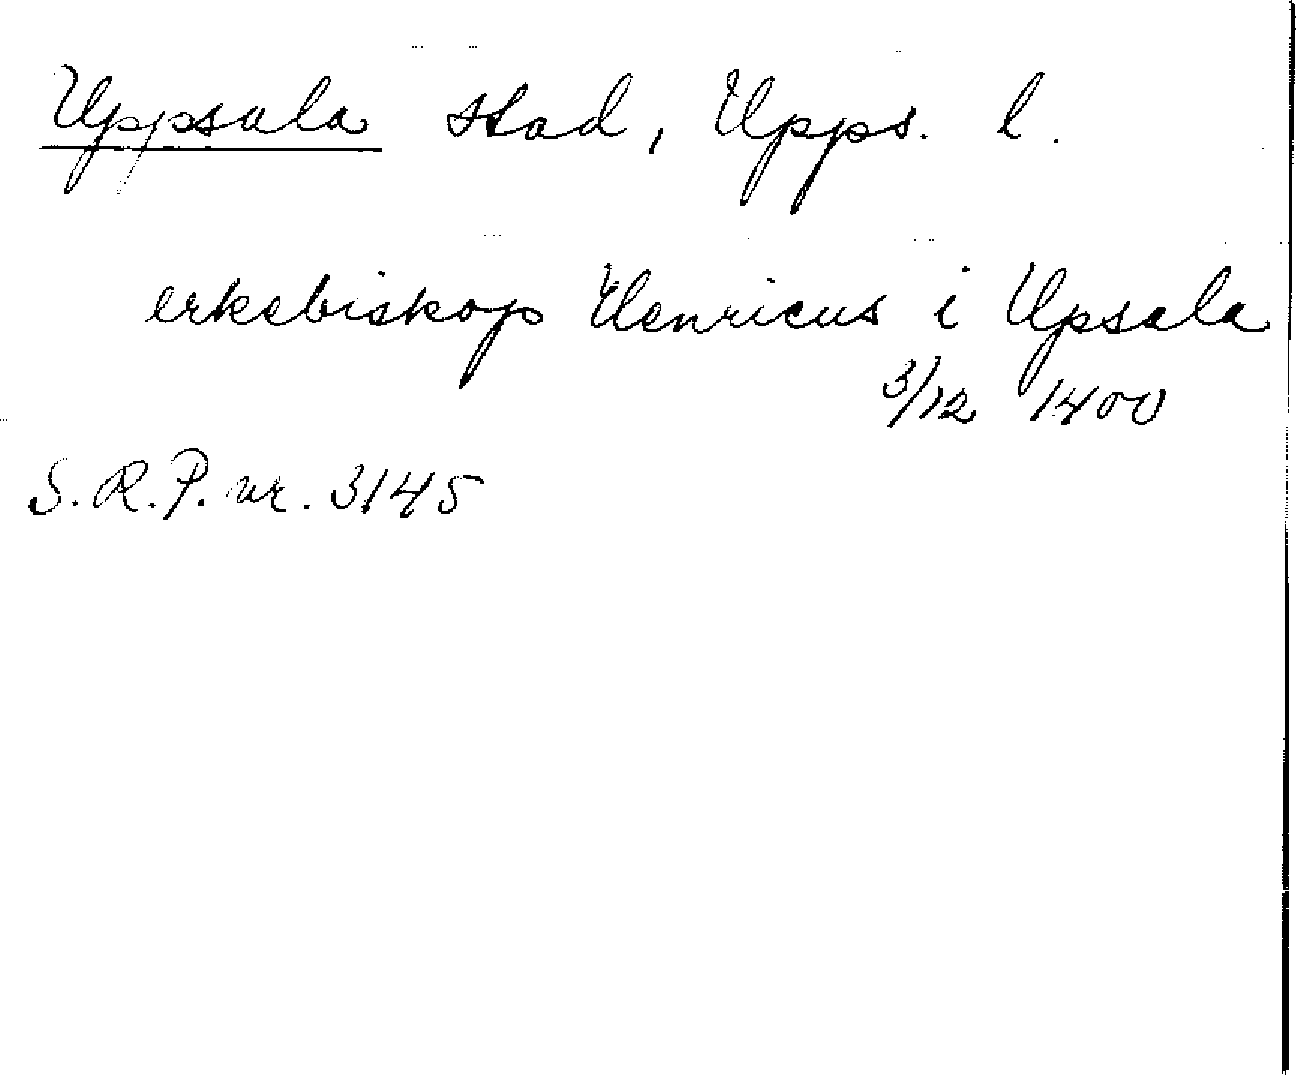 Uppsala stad, Upps. l.
erkebiskop Henricus i Upsala
3/12 1400
S.R.P. nr. 3145